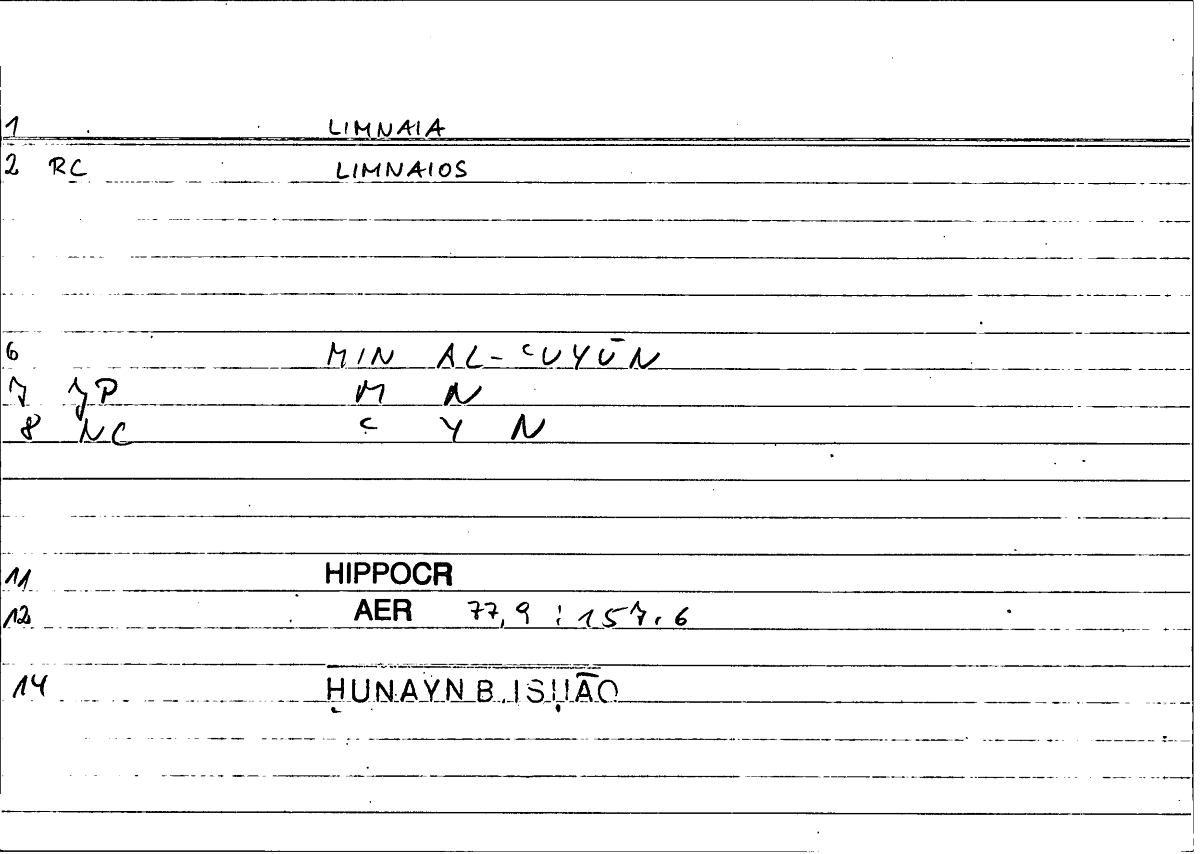 1 LIMNAIA
2 RC LIMNAIOS
6 MIN AL-ʿUYŪN
7 JP M N
8 NC ʿ Y N
11 HIPPOCR
12 AER 77,9 : 157,6
14 ḤUNAYN B. ISḤĀQ